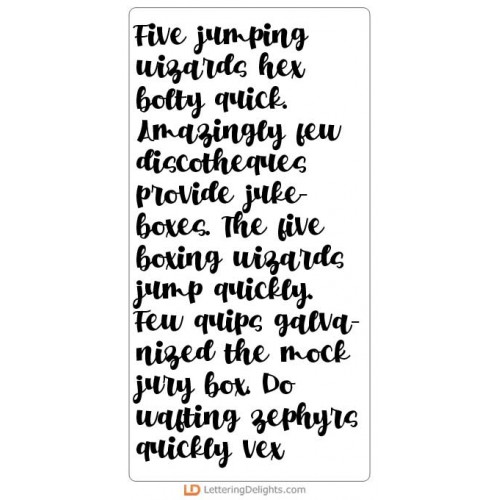 Five jumping
wizards hex
bolty quick.
Amazingly few
discotheques
provide juke-
boxes. The five
boxing wizards
jump quickly.
Few quips galva-
nized the mock
jury box. Do
wafting zephyrs
quickly vex
LD LetteringDelights.com